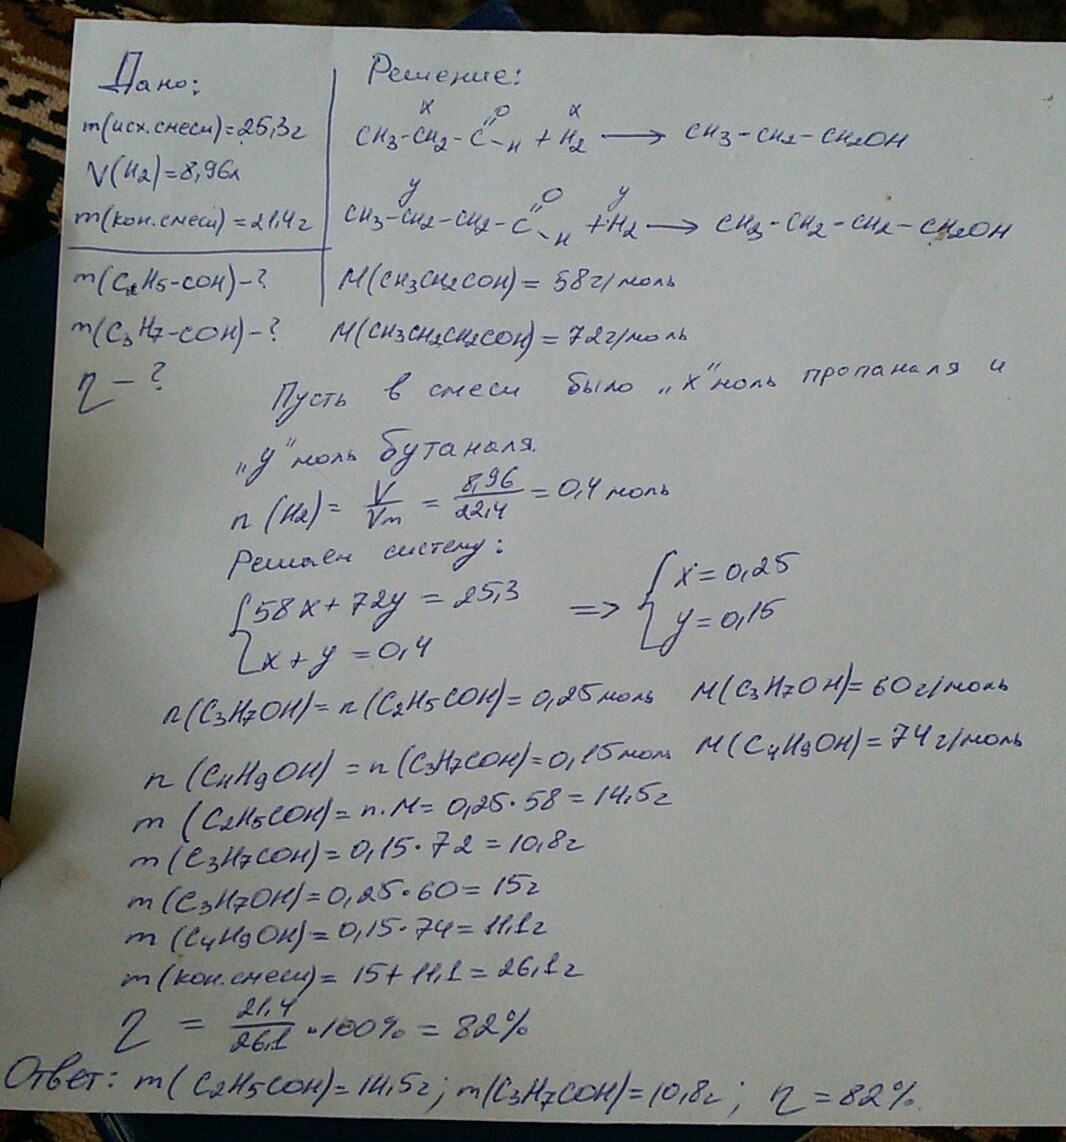 Дано:
m(исх.смеси)=25,3г
V(H2)=8,96л
m(кон.смеси)=21,4г
m(C2H5-COH)-?
m(C3H7-COH)-?
η-?
Решение:
x x
CH3-CH2-C=O-H + H2 ⟶ CH3-CH2-CH2OH
y y
CH3-CH2-CH2-C=O-H + H2 ⟶ CH3-CH2-CH2-CH2OH
M(CH3CH2COH) = 58г/моль
M(CH3CH2CH2COH) = 72г/моль
Пусть в смеси было „x" моль пропаналя и
„y" моль бутаналя.
n (H2) = V/Vm = 8,96/22,4 = 0,4 моль
Решаем систему:
{58x+72y = 25,3 => {x=0,25
{x+y=0,4 {y=0,15
n(C3H7OH)= n(C2H5COH)= 0,25моль M(C3H7OH)= 60г/моль
n (C4H9OH) = n(C3H7COH)=0,15моль M(C4H9OH)=74г/моль
m (C2H5COH)= n·M= 0,25·58=14,5г
m(C3H7COH)=0,15·72=10,8г
m(C3H7OH)=0,25·60=15г
m (C4H9OH)=0,15·74=11,1г
m(кон.смеси)= 15+11,1=26,1г
η = 21,4/26,1 ·100% = 82%
Ответ: m(C2H5COH)=14,5г; m(C3H7COH)=10,8г; η=82%.